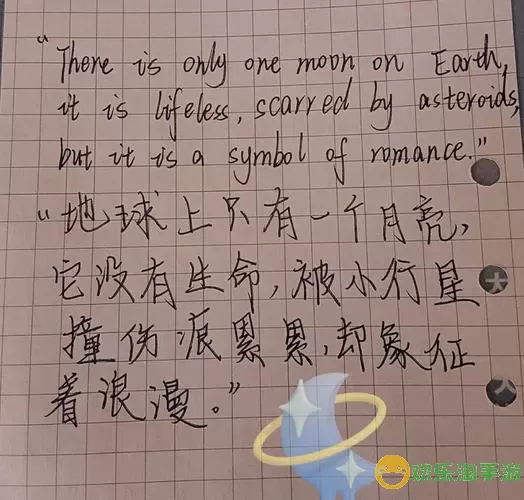 "There is only one moon on Earth,
it is lifeless, scarred by asteroids,
but it is a symbol of romance."
"地球上只有一个月亮,
它没有生命,被小行星
撞伤痕累累,却象征
着浪漫。"
大
人
欢乐淘手游